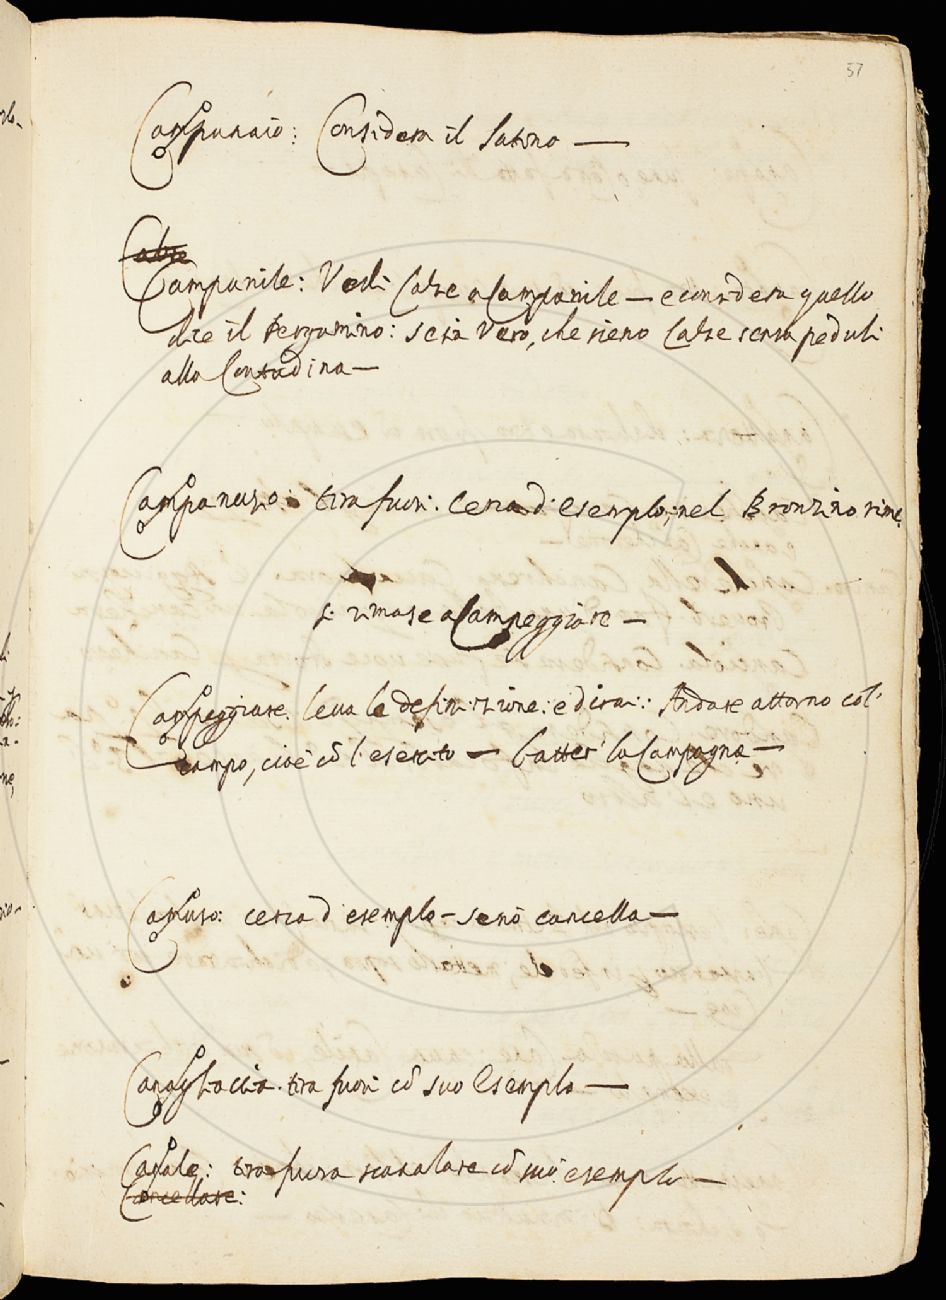 57
Campanaio: Considera il latino —
Calze
Campanile: Vedi Calze a Campanile — e considera quello
dice il Bergamino: se sia vero, che sieno Calze senza peduli
alla Contadina —
Campanuzo: tira fuori. Cerca d'esemplo, nel Bronzino rime
rimase a Campeggiare —
Campeggiare. leva le definizione: e dirai: Andare attorno col
campo, cioè cō l'esercito — batter la Campagna —
Camuso: cerca d'esemplo — senò cancella —
Canagliaccia. tira fuori cō suo Esemplo —
Canale: tira fuora scanalare cō suo esemplo —
Cancellare: